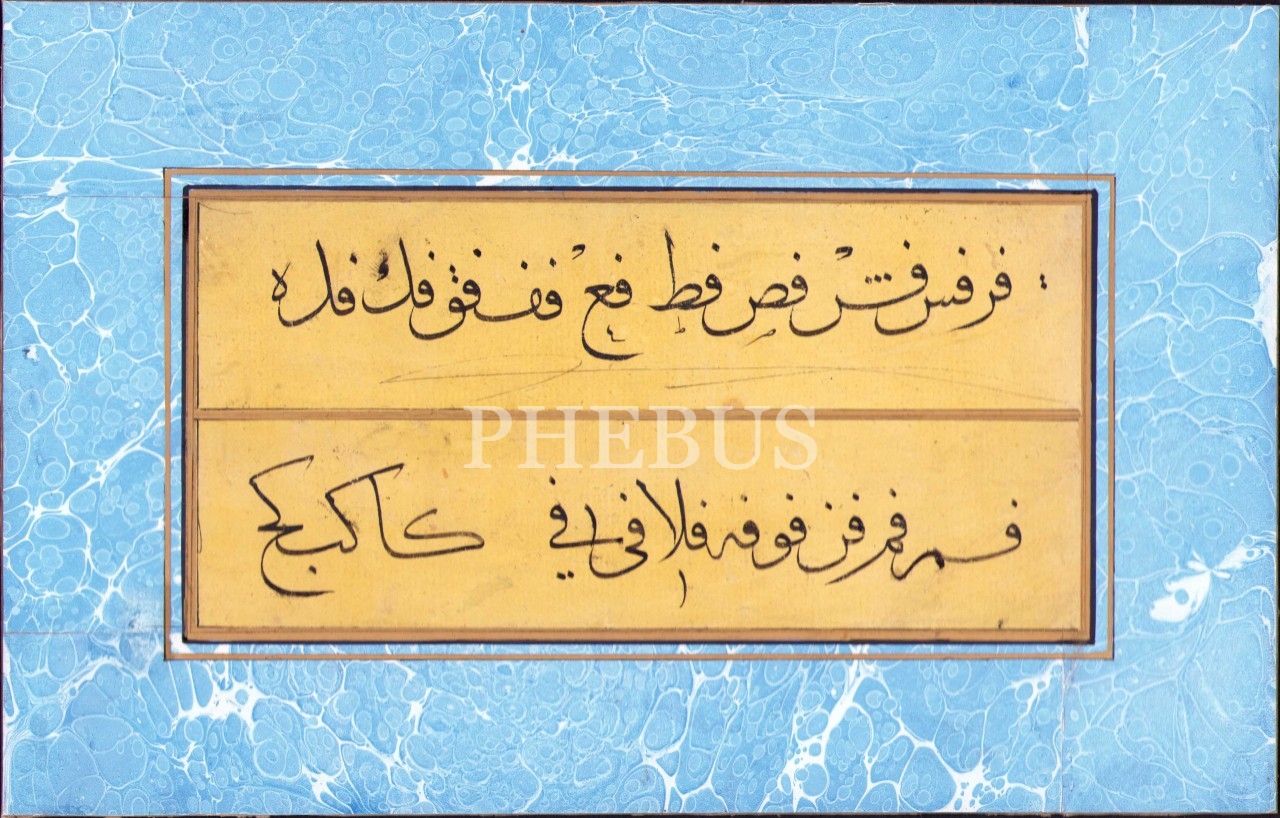 فر فس فشر فص فط فع فف فق فك فل ه
PHEBUS
فم فمر فن فو فه فلا فى فے كا كب كج